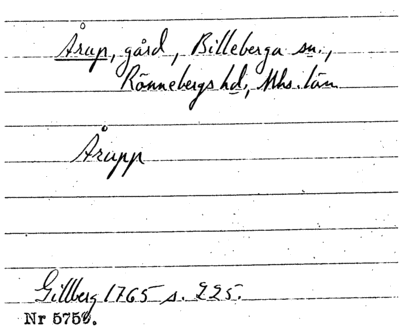 Årup, gård, Billeberga sn.,
Rönnebergs hd., Mhs. län
Årupp
Gillberg 1765 s. 225.
Nr 5750.